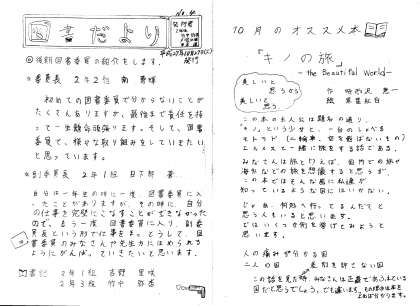 No.4
図書だより
発行者
◎後期図書委員の紹介をします。
委員長 2年2組 南
初めての図書委員で分からないことが
たくさんありますが、最後まで責任を持
って一生懸命頑張ります。そして、図書
委員で、様々な取り組みをしていきたい
と思っています。
副委員長 2年1組
自分は一年生の時に一度、図書委員に入
ったことがありますが、その時に、自分
の仕事を完璧にこなすことができなかった
ので、もう一度図書委員に入り、副委
員長という形で仕事を
書委員のみなさんや先生方にほめられる
ようにがんばっていきたいと思います。
書記 2年1組 吉野 里咲
2年3組 竹中 弥恵
10月のオススメ本
『キノの旅』
―the Beautiful World―
美しいと
思うから
美しいと
思う
作 時雨沢 恵一
絵 黒星紅白
この本の主人公は題名の通り、
「キノ」という少女と、一台のしゃべる
モトラド(二輪車。空を飛ばないもの)
エルメスと一緒に旅をする話である。
みなさんは旅と聞くと、国内での旅や
海外などの旅を想像すると思うが、
この本ではそんな風に私達が
知っているような国にはいかない。
じゃあ、何処へ行ってるんだ?と
思う人もいると思います。
ではいくつか例を挙げてみようと
思います。
人の痛みが分かる国
二人の国
この話を見た時、みなさんは
国だと思うでしょう。でも違います。